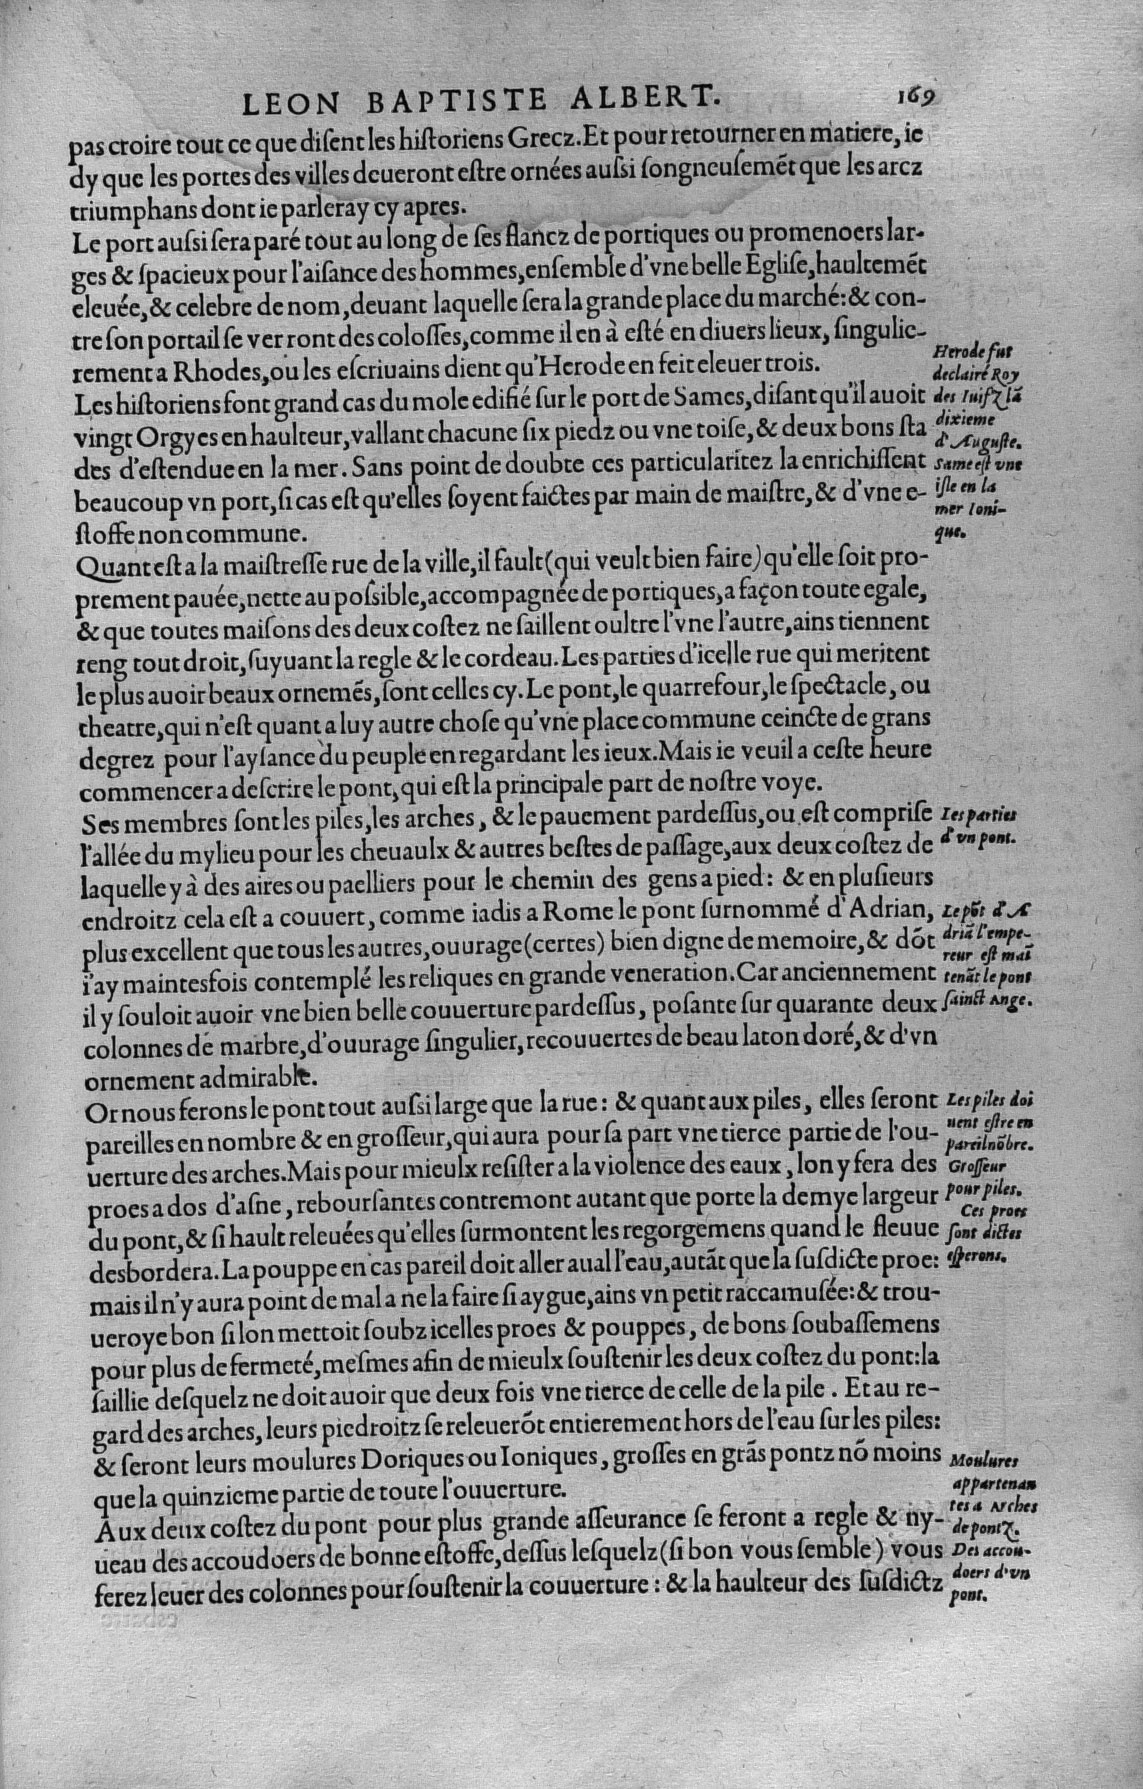 LEON BAPTISTE ALBERT. 169
pas croire tout ce que diſent les hiſtoriens Grecz. Et pour retourner en matiere, ie
dy que les portes des villes deueront eſtre ornées auſsi ſongneuſemẽt que les arcz
triumphans dont ie parleray cy apres.
Le port auſsi ſera paré tout au long de ſes flancz de portiques ou promenoers lar-
ges & ſpacieux pour l'aiſance des hommes, enſemble d'vne belle Egliſe, haultemẽt
eleuée, & celebre de nom, deuant laquelle ſera la grande place du marché: & con-
tre ſon portail ſe verront des coloſſes, comme il en à eſté en diuers lieux, ſingulie-
rement a Rhodes, ou les eſcriuains dient qu'Herode en feit eleuer trois.
Les hiſtoriens font grand cas du mole edifié ſur le port de Sames, diſant qu'il auoit
vingt Orgyes en haulteur, vallant chacune ſix piedz ou vne toiſe, & deux bons ſta
des d'eſtendue en la mer. Sans point de doubte ces particularitez la enrichiſſent
beaucoup vn port, ſi cas eſt qu'elles ſoyent faictes par main de maiſtre, & d'vne e-
ſtoffe non commune.
Herode fut
declairé Roy
des Iuifz lã
dixieme
d'Auguſte.
Same eſt vne
iſle en la
mer Ioni-
que.
Quant eſt a la maiſtreſſe rue de la ville, il fault (qui veult bien faire) qu'elle ſoit pro-
prement pauée, nette au poſsible, accompagnée de portiques, a façon toute egale,
& que toutes maiſons des deux coſtez ne ſaillent oultre l'vne l'autre, ains tiennent
reng tout droit, ſuyuant la regle & le cordeau. Les parties d'icelle rue qui meritent
le plus auoir beaux ornemẽs, ſont celles cy. Le pont, le quarrefour, le ſpectacle, ou
theatre, qui n'eſt quant a luy autre choſe qu'vne place commune ceincte de grans
degrez pour l'ayſance du peuple en regardant les ieux. Mais ie veuil a ceſte heure
commencer a deſcrire le pont, qui eſt la principale part de noſtre voye.
Ses membres ſont les piles, les arches, & le pauement pardeſſus, ou eſt compriſe
l'allée du mylieu pour les cheuaulx & autres beſtes de paſſage, aux deux coſtez de
laquelle y à des aires ou paelliers pour le chemin des gens a pied: & en pluſieurs
endroitz cela eſt a couuert, comme iadis a Rome le pont ſurnommé d'Adrian,
plus excellent que tous les autres, ouurage (certes) bien digne de memoire, & dõt
i'ay maintesfois contemplé les reliques en grande veneration. Car anciennement
il y ſouloit auoir vne bien belle couuerture pardeſſus, poſante ſur quarante deux
colonnes de marbre, d'ouurage ſingulier, recouuertes de beau laton doré, & d'vn
ornement admirable.
Les parties
d'vn pont.
Le põt d'A
driã l'empe-
reur eſt mai
tenãt le pont
ſainct Ange.
Or nous ferons le pont tout auſsi large que la rue: & quant aux piles, elles ſeront
pareilles en nombre & en groſſeur, qui aura pour ſa part vne tierce partie de l'ou-
uerture des arches. Mais pour mieulx reſiſter a la violence des eaux, lon y fera des
proes a dos d'aſne, rebourſantes contremont autant que porte la demye largeur
du pont, & ſi hault releuées qu'elles ſurmontent les regorgemens quand le fleuue
desbordera. La pouppe en cas pareil doit aller aual l'eau, autãt que la ſuſdicte proe:
mais il n'y aura point de mal a ne la faire ſi aygue, ains vn petit raccamuſée: & trou-
ueroye bon ſi lon mettoit ſoubz icelles proes & pouppes, de bons ſoubaſſemens
pour plus de fermeté, meſmes afin de mieulx ſouſtenir les deux coſtez du pont: la
ſaillie deſquelz ne doit auoir que deux fois vne tierce de celle de la pile. Et au re-
gard des arches, leurs piedroitz ſe releuerõt entierement hors de l'eau ſur les piles:
& ſeront leurs moulures Doriques ou Ioniques, groſſes en grãs pontz nõ moins
que la quinzieme partie de toute l'ouuerture.
Les piles doi
uent eſtre en
pareil nõbre.
Groſſeur
pour piles.
Ces proes
ſont dictes
eſperons.
Aux deux coſtez du pont pour plus grande aſſeurance ſe feront a regle & ny-
ueau des accoudoers de bonne eſtoffe, deſſus leſquelz (ſi bon vous ſemble) vous
ferez leuer des colonnes pour ſouſtenir la couuerture: & la haulteur des ſuſdictz
Moulures
appartenan
tes a Arches
de pontz.
Des accou-
doers d'vn
pont.